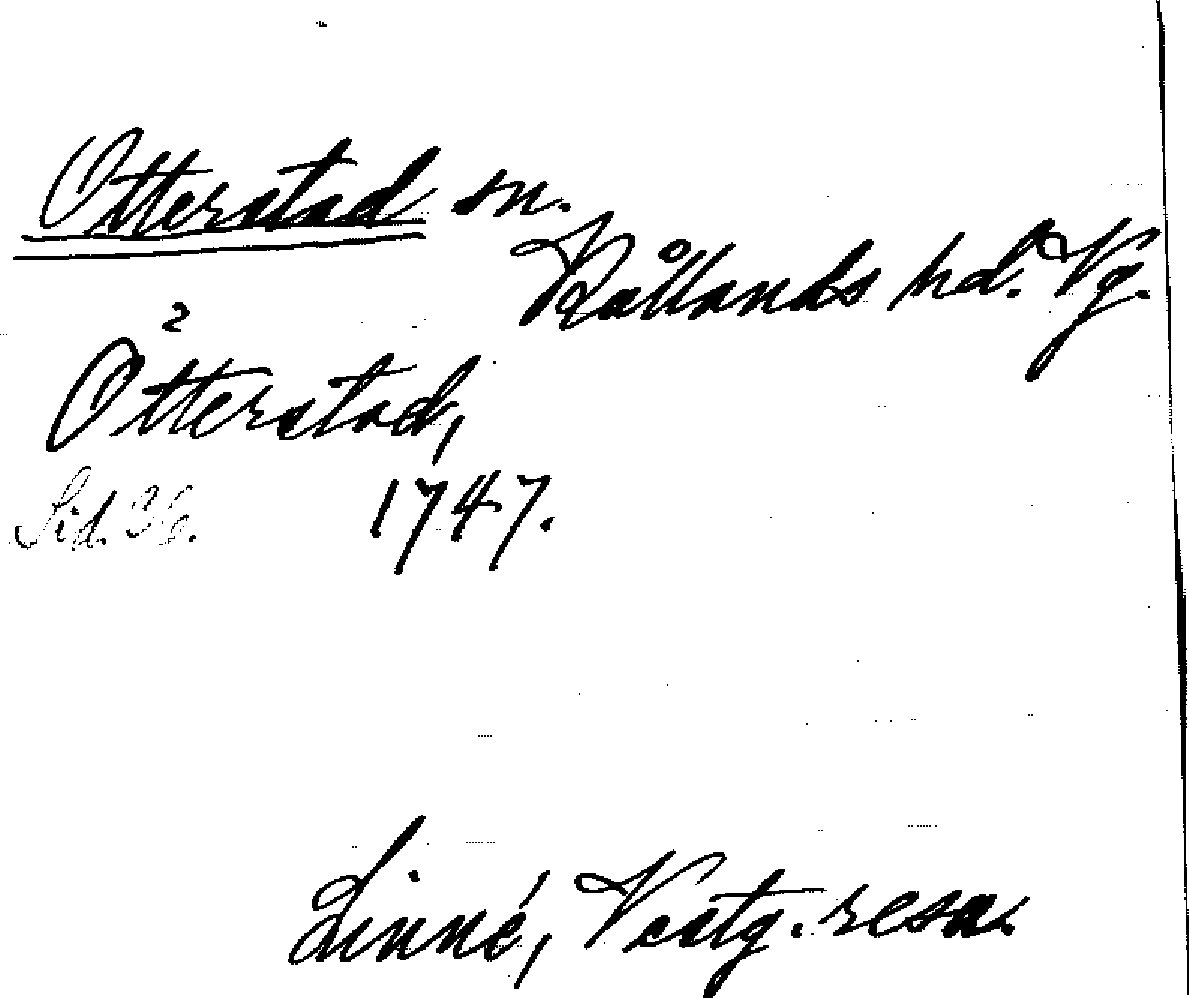 Otterstad sn.
Kållands hd. Vg.
2
Otterstad,
Sid. 36. 1747.
Linné, Vestg. resa.